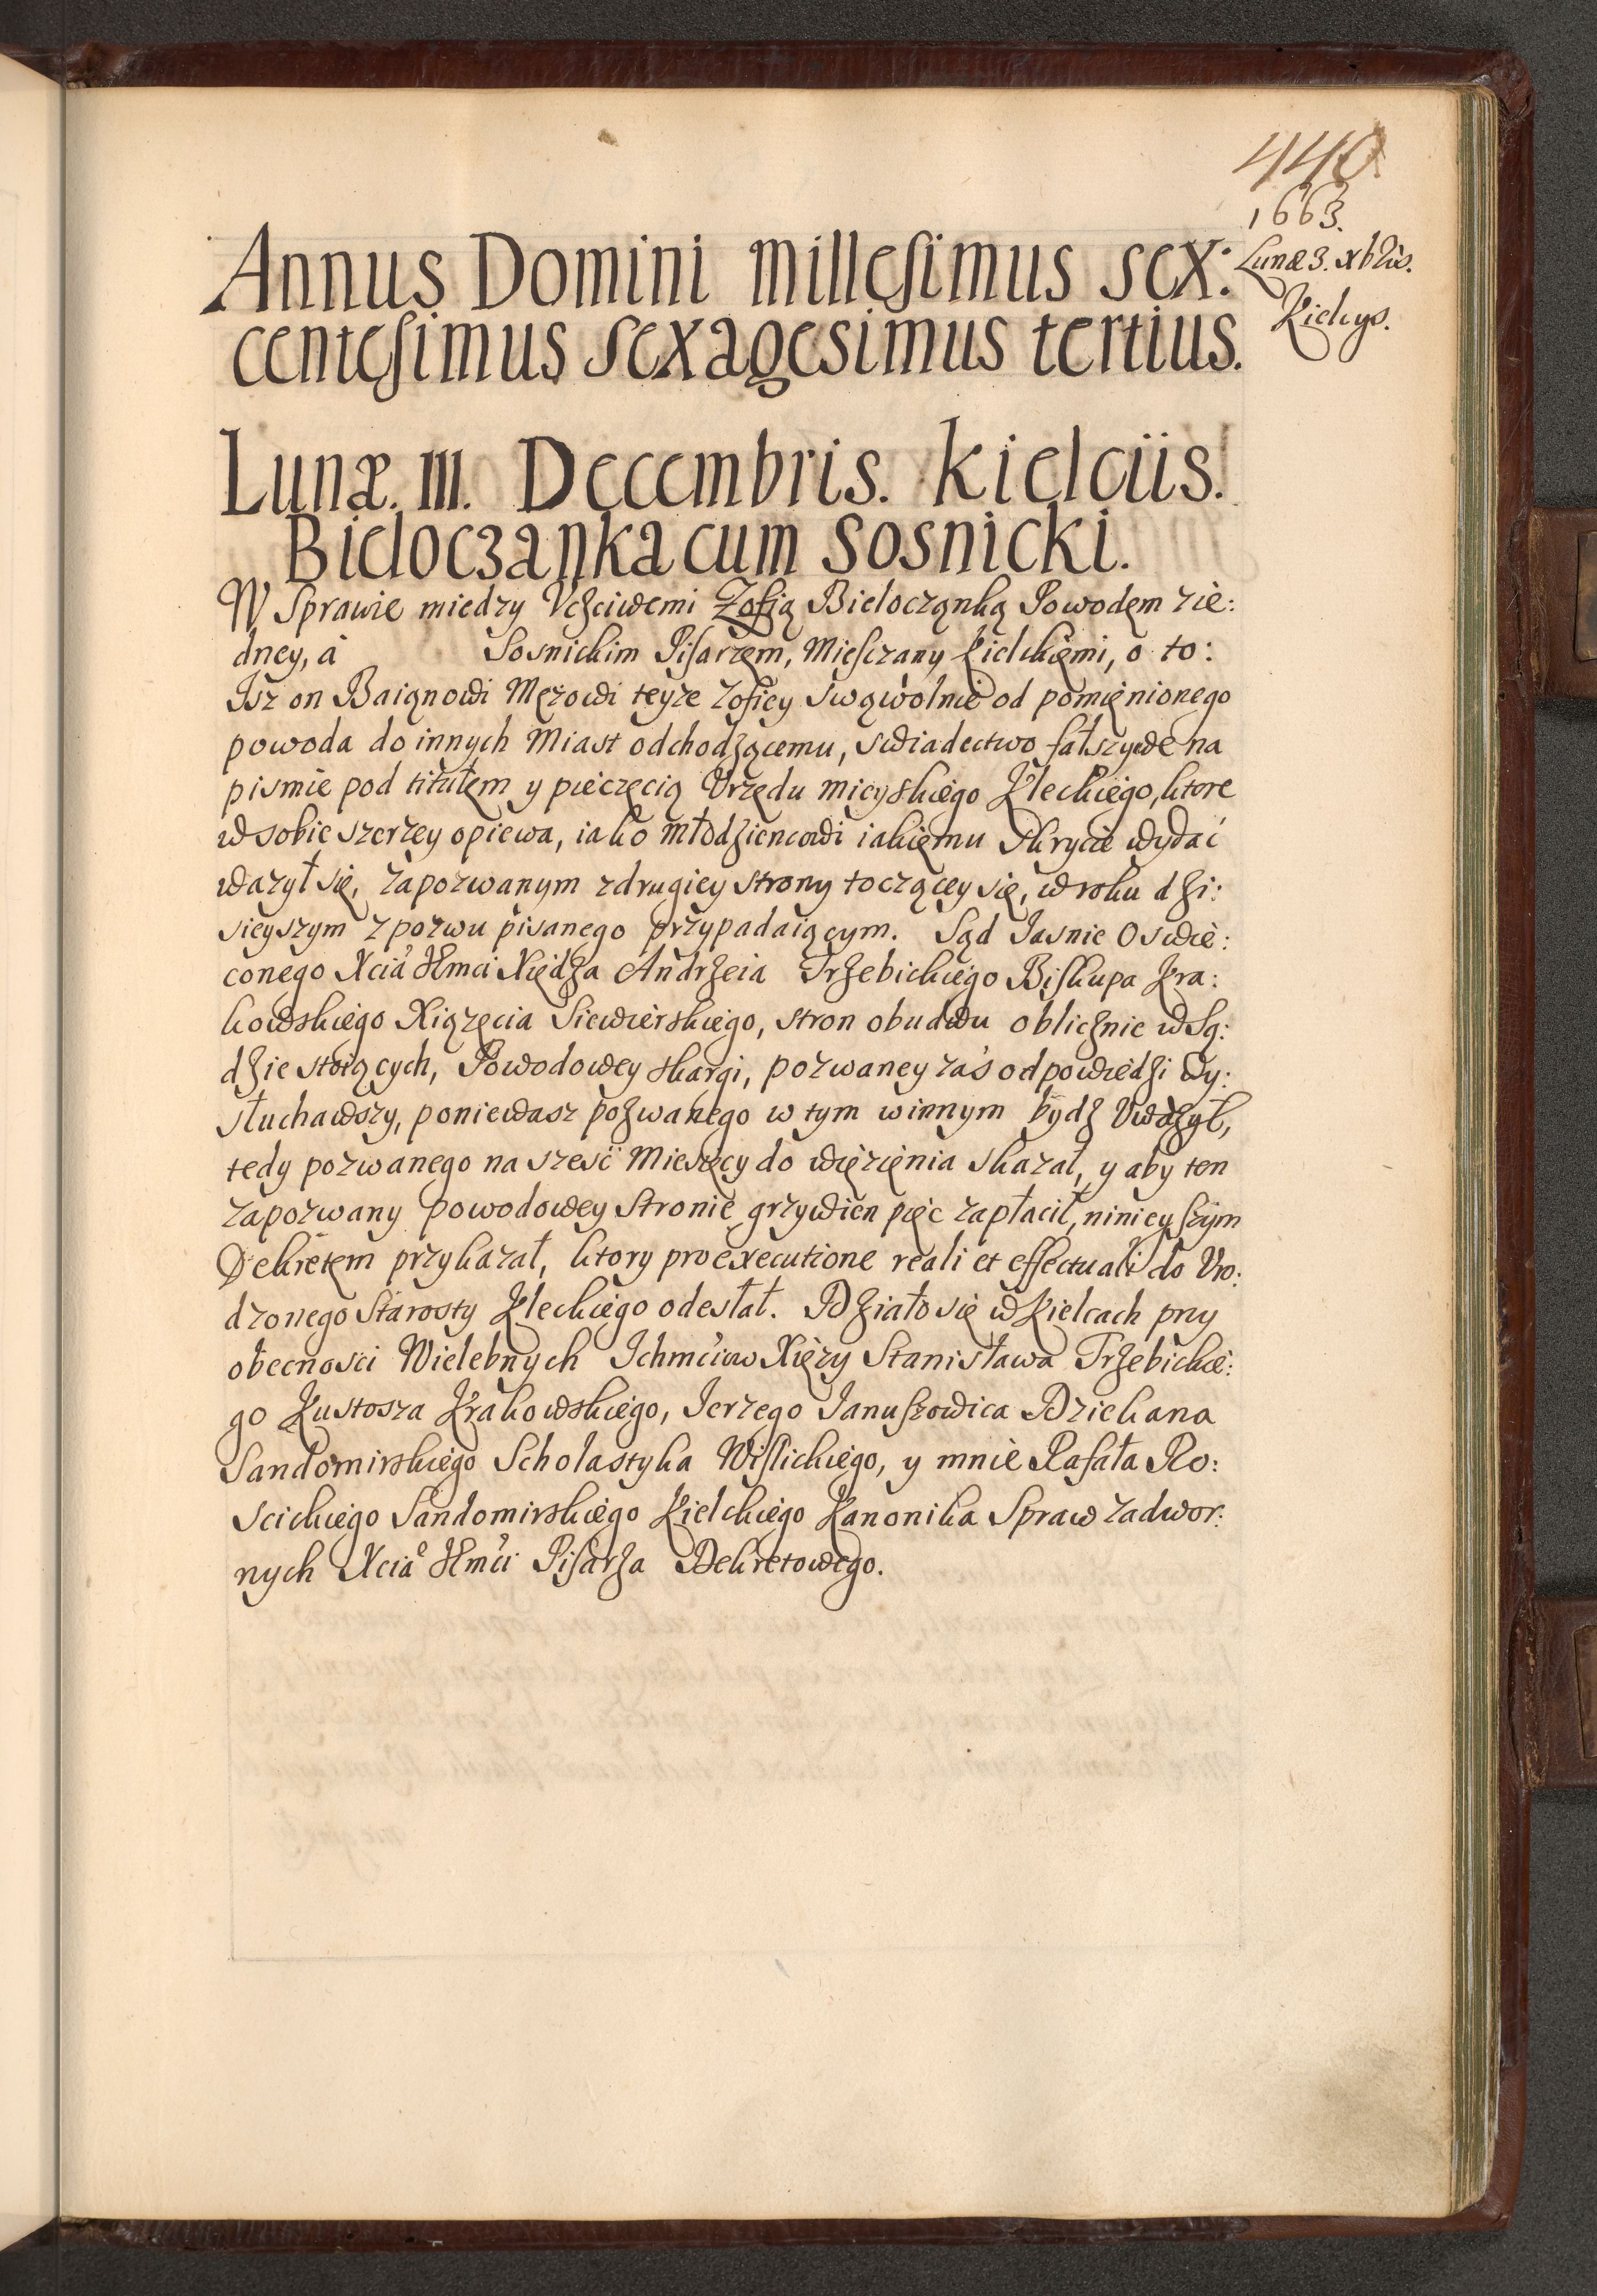 440
1663.
Lunæ 3. xbris.
Kielcys.
Annus Domini millesimus sex:
centesimus sexagesimus tertius.
Lunæ. III. Decembris. Kielciis.
Bieloczanka cum Sosnicki.
W Sprawie miedzy Vczciwemi Zofią Bielocząnką Powodęm zie:
dney, á Sosnickim Pisarzęm, Miesczány Kielckięmi, o to:
Isz on Baiąnowi Męzowi teyze Zofiey swąwolnie od pomięnionego
powoda do innych Miast odchodzącemu, swiadectwo fałszywe na
pismie pod titułęm y pieczęcią Vrzędu Mieyskiego Kleckiego, ktore
w sobie szerzey opiewa, iako Młodziencowi iakięmu Skrycie wydać
wazył się, Zapozwanym z drugiey strony toczącey się, w roku dzi:
sieyszym z pozwu pisanego przypadaiącym. Sąd Iasnie Oswie:
conego Xcia Jmci Xiędza Andrzeia Trzebickiego Biskupa Kra:
kowskiego Xiązęcia Siewierskiego, stron obudwu oblicznie w Są:
dzie stoiących, Powodowey skargi, pozwaney zaś odpowiedzi wy:
słuchawszy, poniewasz pozwanego w tym winnym bydz Vwazył,
tedy pozwanego na sześć Miesięcy do więzięnia skazał, y aby ten
zapozwany powodowey Stronie grzywien pięc zapłacił, ninieyszym
Dekretem przykazał, ktory pro executione reali et effectuali do Vro:
dzonego Starosty Kleckiego odesłał. Działo się w Kielcach przy
obecnosci Wielebnych Ichmciow Xięzy Stanisława Trzebickie:
go Kustosza Krakowskiego, Ierzego Ianuszowica Dziekana
Sandomirskiego Scholastyka Wislickiego, y mnie Rafała Ro:
scickiego Sandomirskiego Kielckiego Kanonika Spraw zadwor:
nych Xcia Jmci Pisarza Dekretowego.